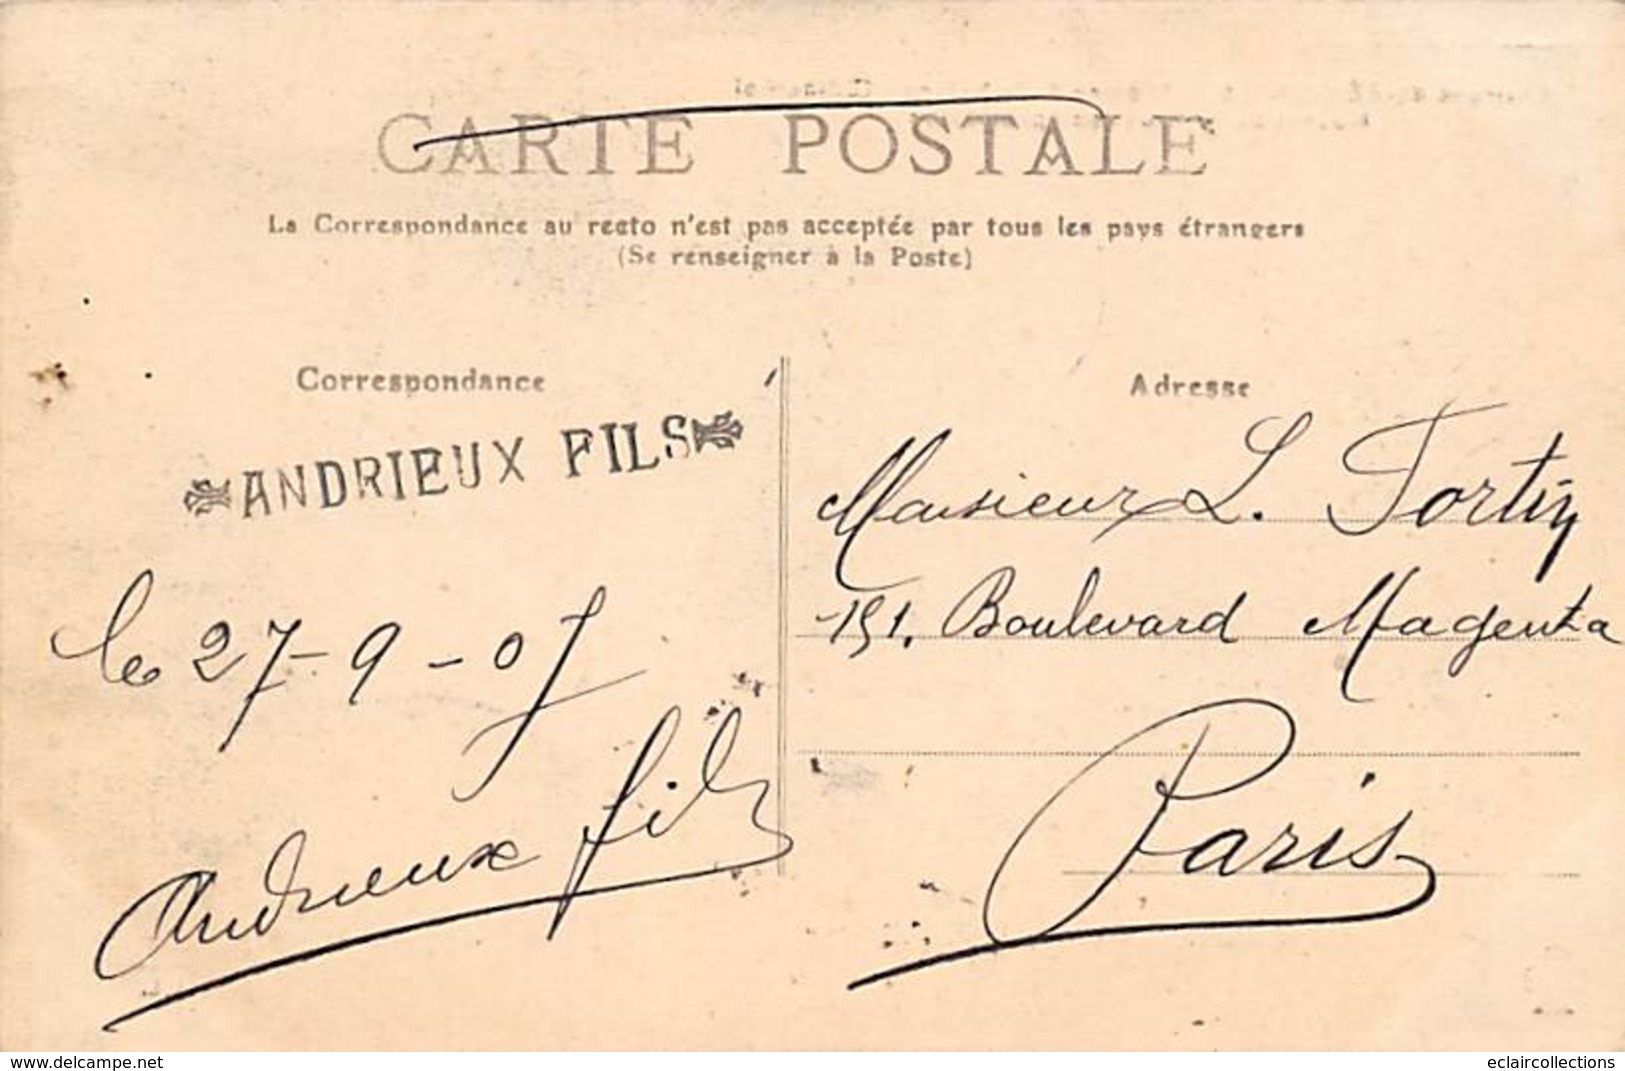 CARTE POSTALE
La Correspondance au recto n'est pas acceptée par tous les pays étrangers
(Se renseigner à la Poste)
Correspondance
ANDRIEUX FILS
le 27-9-07
Andrieux fils
Adresse
Monsieur L. Tortin
151. Boulevard Magenta
Paris
www.delcampe.net
eclaircollections